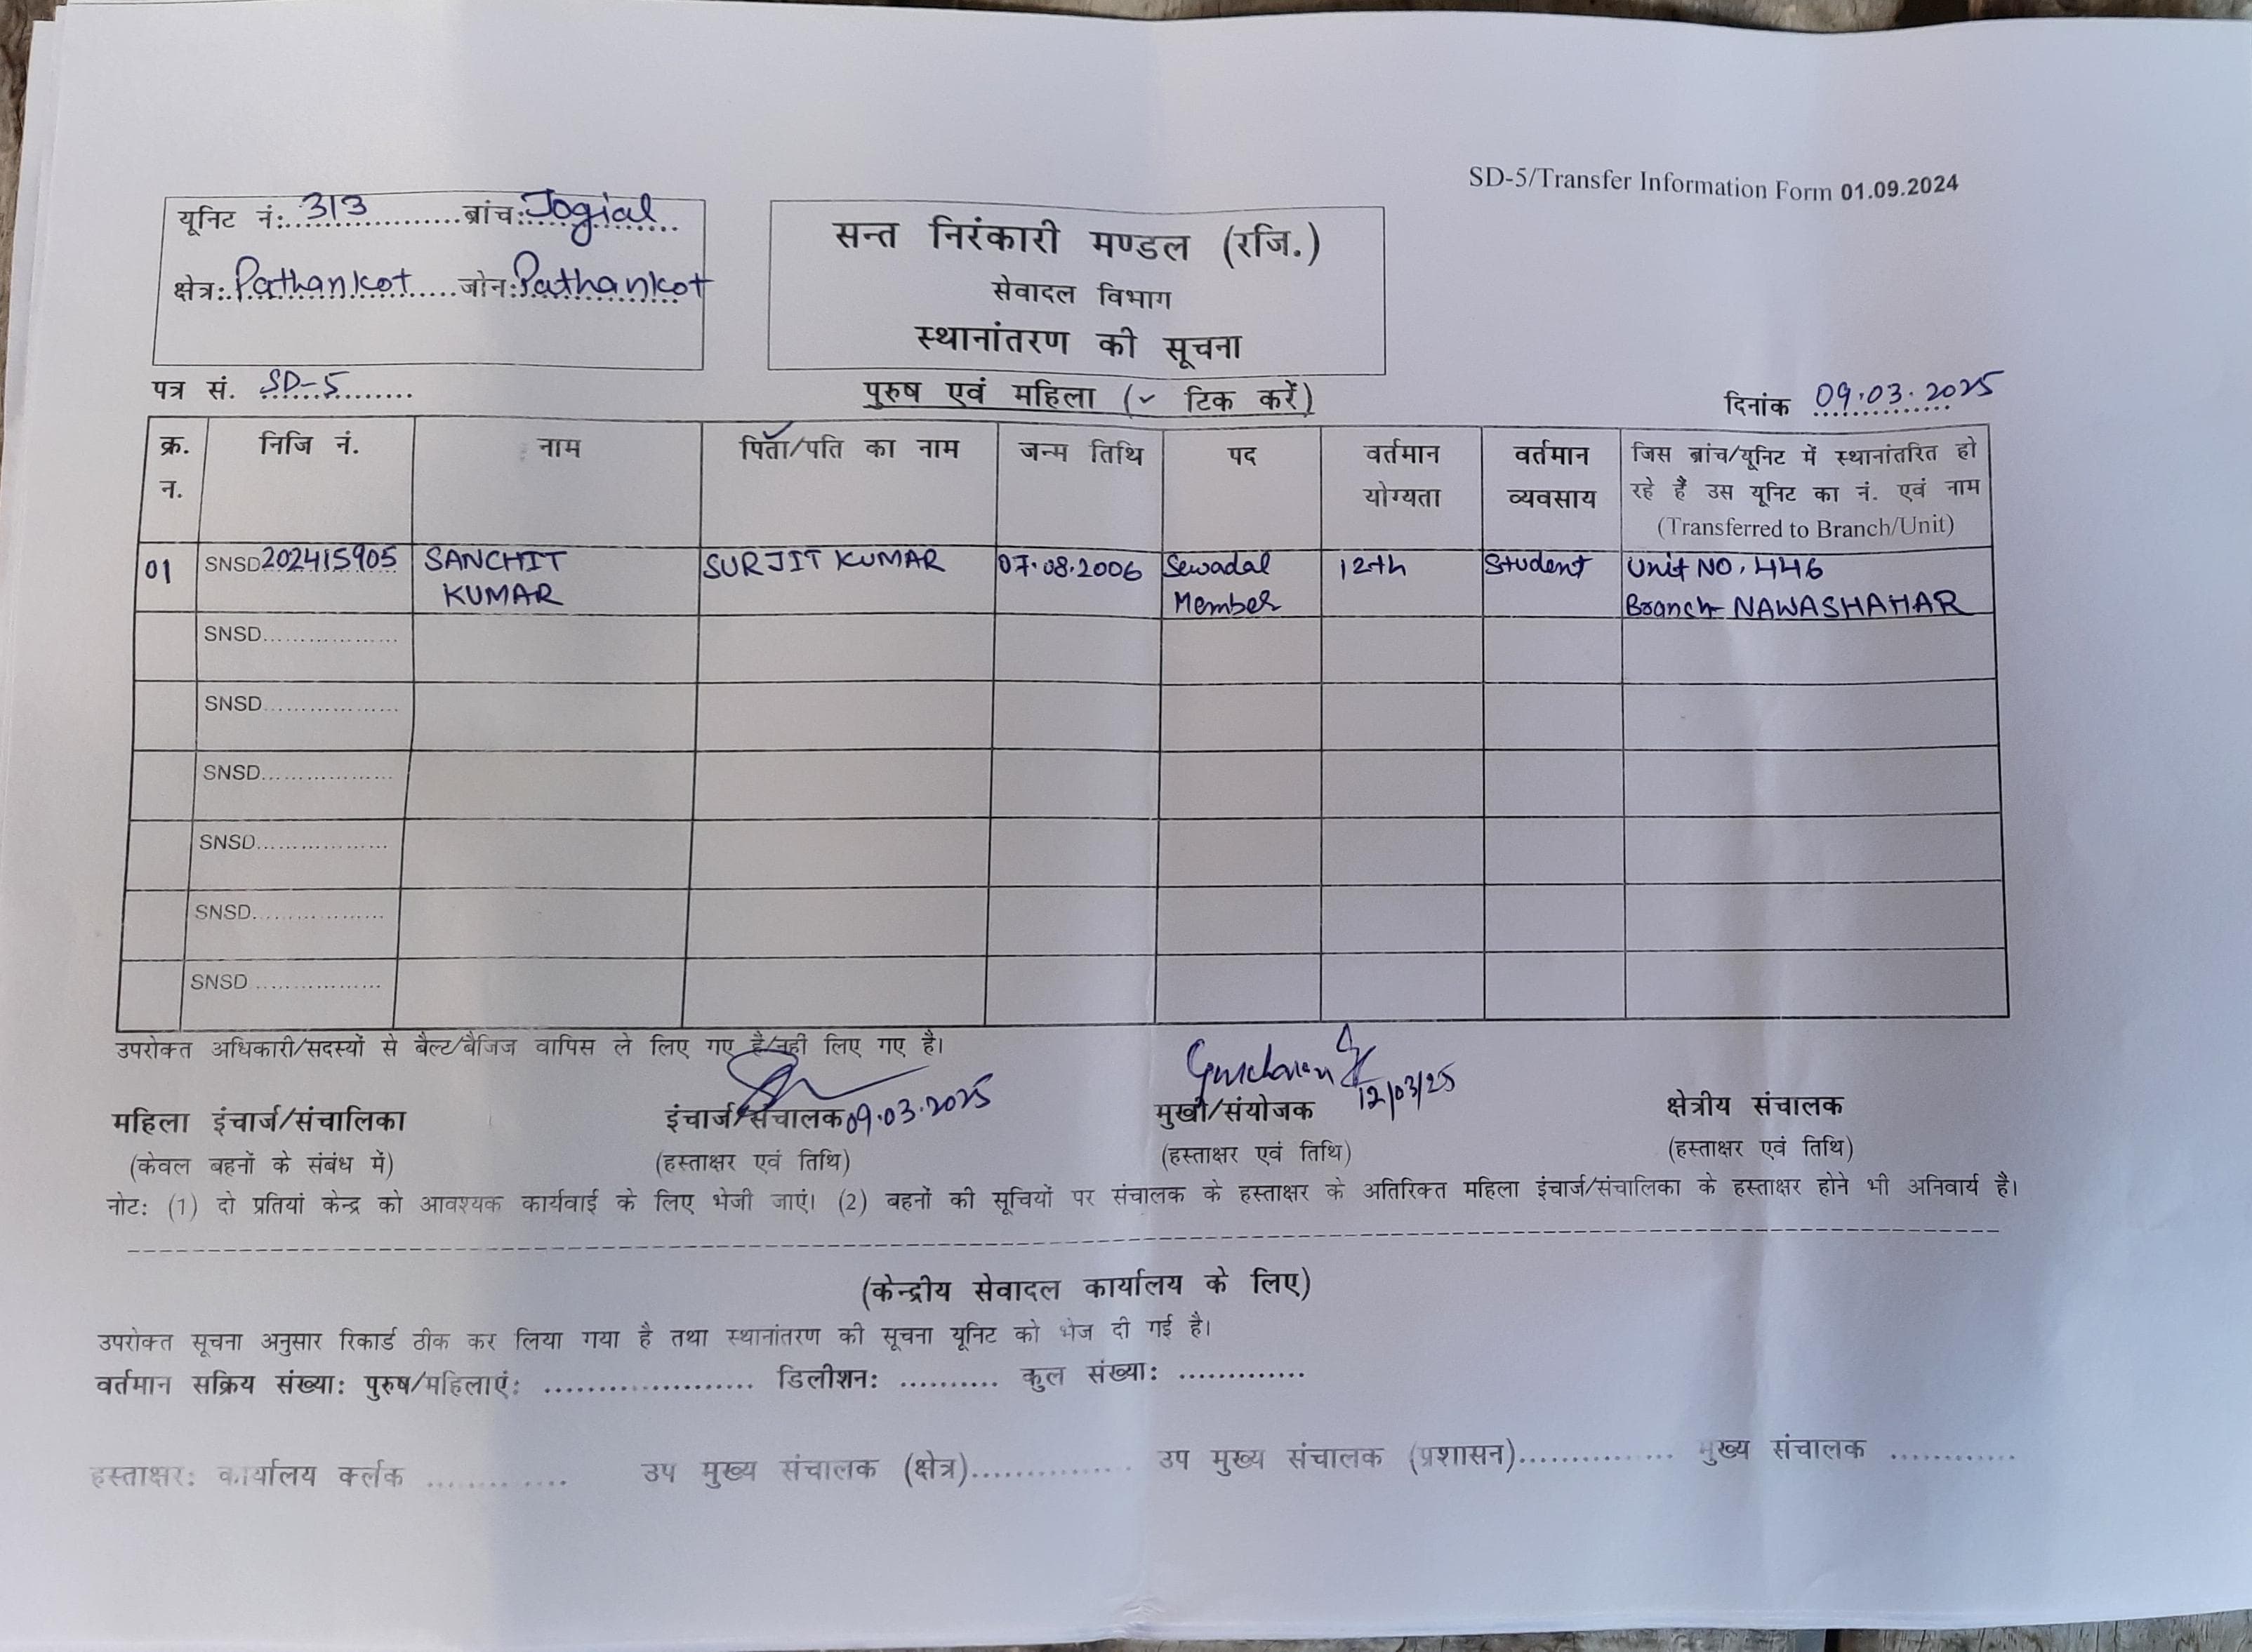 SD-5/Transfer Information Form 01.09.2024
यूनिट नं:. 313 ............ब्रांच: Jogial
क्षेत्र: Pathankot ......जोन: Pathankot
सन्त निरंकारी मण्डल (रजि.)
सेवादल विभाग
स्थानांतरण की सूचना
पत्र सं. SD-5 .........
पुरुष एवं महिला (✓ टिक करें)
दिनांक 09.03.2025
क्र. न. निजि नं. नाम पिता/पति का नाम जन्म तिथि पद वर्तमान योग्यता वर्तमान व्यवसाय जिस ब्रांच/यूनिट में स्थानांतरित हो रहे हैं उस यूनिट का नं. एवं नाम (Transferred to Branch/Unit)
01 SNSD202415905 SANCHIT KUMAR SURJIT KUMAR 07.08.2006 Sewadal Member 12th Student Unit NO. 446 Branch- NAWASHAHAR
SNSD..................
SNSD..................
SNSD..................
SNSD..................
SNSD..................
SNSD..................
उपरोक्त अधिकारी/सदस्यों से बैल्ट/बैजिज वापिस ले लिए गए है/नहीं लिए गए है।
Gurcharan
महिला इंचार्ज/संचालिका इंचार्ज/संचालक 09.03.2025 मुखी/संयोजक 12/03/25 क्षेत्रीय संचालक
(केवल बहनों के संबंध में) (हस्ताक्षर एवं तिथि) (हस्ताक्षर एवं तिथि) (हस्ताक्षर एवं तिथि)
नोट: (1) दो प्रतियां केन्द्र को आवश्यक कार्यवाई के लिए भेजी जाएं। (2) बहनों की सूचियों पर संचालक के हस्ताक्षर के अतिरिक्त महिला इंचार्ज/संचालिका के हस्ताक्षर होने भी अनिवार्य है।
(केन्द्रीय सेवादल कार्यालय के लिए)
उपरोक्त सूचना अनुसार रिकार्ड ठीक कर लिया गया है तथा स्थानांतरण की सूचना यूनिट को भेज दी गई है।
वर्तमान सक्रिय संख्या: पुरुष/महिलाएं: ..................... डिलीशन: .......... कुल संख्या: .............
हस्ताक्षर: कार्यालय क्लंक .............. उप मुख्य संचालक (क्षेत्र)................ उप मुख्य संचालक (प्रशासन)................ मुख्य संचालक .............